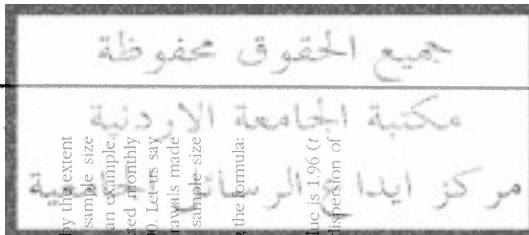 جميع الحقوق محفوظة
مكتبة الجامعة الاردنية
مركز ايداع الرسائل الجامعية
by the extent
sample size
an example.
xed monthly
00. Let us say
rawals made
sample size
g the formula:
lue is 1.96 (t
dispersion of